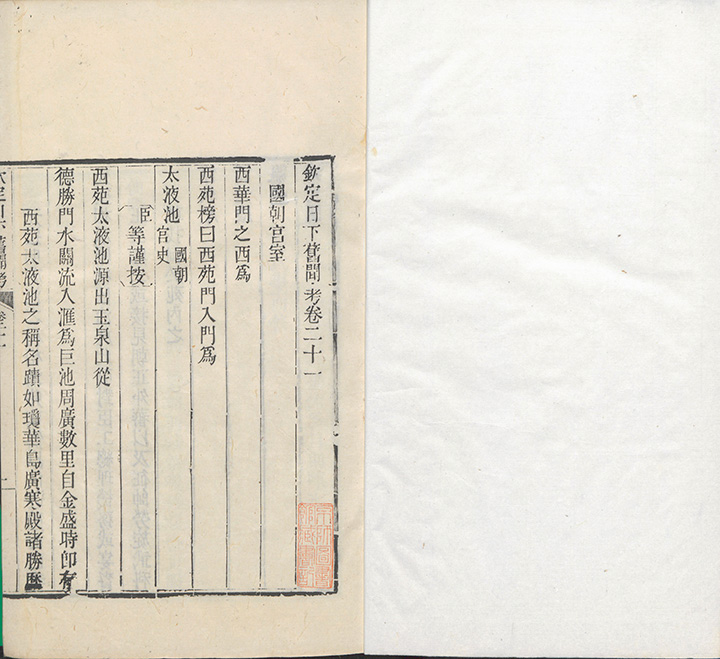 欽定日下舊聞考卷二十一
國朝宮室
西華門之西爲
西苑榜曰西苑門入門爲
太液池 國朝宮史
臣等謹按
西苑太液池源出玉泉山從
德勝門水關流入滙爲巨池周廣數里自金盛時卽有
西苑太液池之稱名蹟如瓊華島廣寒殿諸勝歷